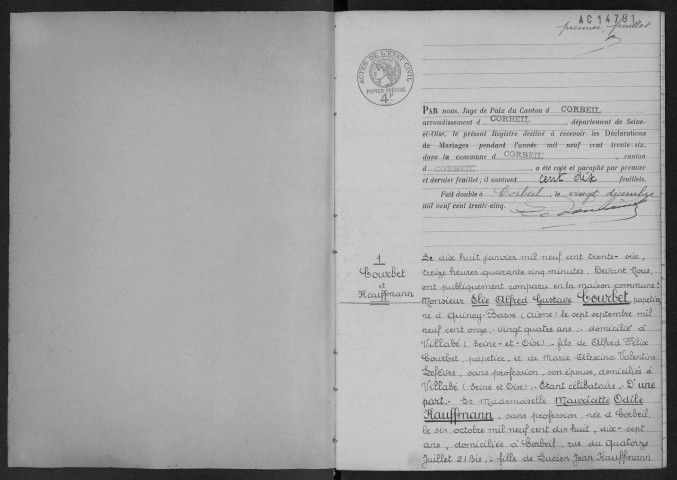 AC14791
premier feuillet
ACTES DE L'ETAT CIVIL
PAPIER SPÉCIAL
4F
PAR nous, Juge de Paix du Canton d CORBEIL
arrondissement d CORBEIL, département de Seine-
et-Oise, le présent Registre destiné à recevoir les Déclarations
de Mariages pendant l'année mil neuf cent trente-six,
dans la commune d CORBEIL, canton
d CORBEIL, a été coté et paraphé par premier
et dernier feuillet; il contient cent dix feuillets.
Fait double à Corbeil, le vingt décembre
mil neuf cent trente-cinq.
1
Courbet
et
Kauffmann
Le dix huit janvier mil neuf cent trente-six,
treize heures quarante cinq minutes, Devant Nous,
ont publiquement comparu en la maison commune:
Monsieur Elie Alfred Gustave Courbet, papetier
né à Quincy-Basse (Aisne) le sept septembre mil
neuf cent onze, vingt quatre ans, domicilié à
Villabé (Seine-et-Oise), fils de Alfred Félix
Courbet, papetier, et de Marie Alexina Valentine
Lefèvre, sans profession, son épouse, domiciliés à
Villabé (Seine et Oise), Etant célibataire, D'une
part. Et Mademoiselle Mauricette Odile
Kauffmann, sans profession, née à Corbeil,
le six octobre mil neuf cent dix huit, dix-sept
ans, domiciliée à Corbeil, rue du Quatorze
Juillet 21 Bis, fille de Lucien Jean Kauffmann